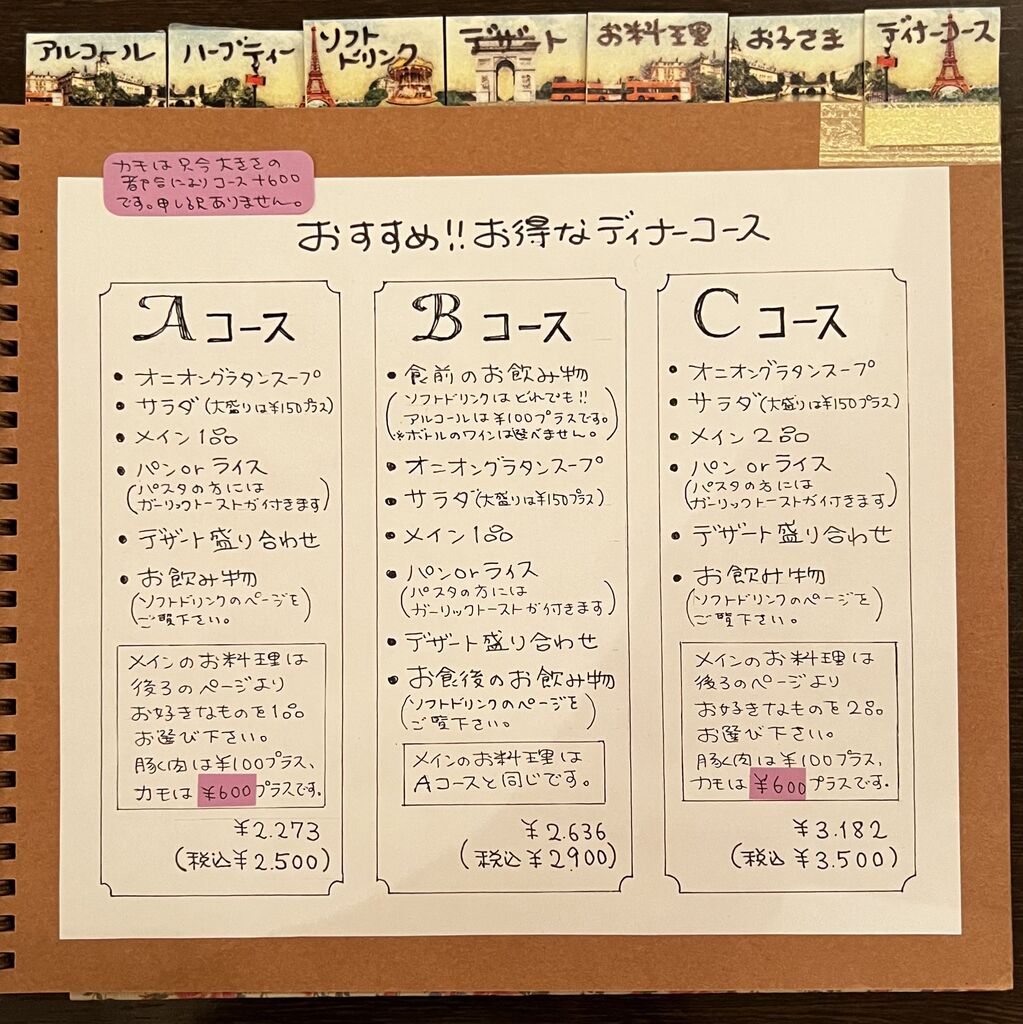 アルコール
ハーブティー
ソフト
ドリンク
デザート
お料理
お子さま
ディナーコース
カモは只今大きさの
都合によりコース+600
です。申し訳ありません。
おすすめ!!お得なディナーコース
Aコース
• オニオングラタンスープ
• サラダ(大盛りは¥150プラス)
• メイン1品
• パンorライス
(パスタの方には
ガーリックトーストが付きます)
• デザート盛り合わせ
• お飲み物
(ソフトドリンクのページを
ご覧下さい。)
メインのお料理は
後ろのページより
お好きなものを1品
お選び下さい。
豚肉は¥100プラス、
カモは¥600プラスです。
¥2.273
(税込¥2.500)
Bコース
• 食前のお飲み物
(ソフトドリンクはどれでも!!
アルコールは¥100プラスです。
※ボトルのワインは選べません。)
• オニオングラタンスープ
• サラダ(大盛りは¥150プラス)
• メイン1品
• パンorライス
(パスタの方には
ガーリックトーストが付きます)
• デザート盛り合わせ
• お食後のお飲み物
(ソフトドリンクのページを
ご覧下さい。)
メインのお料理は
Aコースと同じです。
¥2.636
(税込¥2900)
Cコース
• オニオングラタンスープ
• サラダ(大盛りは¥150プラス)
• メイン2品
• パンorライス
(パスタの方には
ガーリックトーストが付きます)
• デザート盛り合わせ
• お飲み物
(ソフトドリンクのページを
ご覧下さい。)
メインのお料理は
後ろのページより
お好きなものを2品
お選び下さい。
豚肉は¥100プラス、
カモは¥600プラスです。
¥3.182
(税込¥3.500)